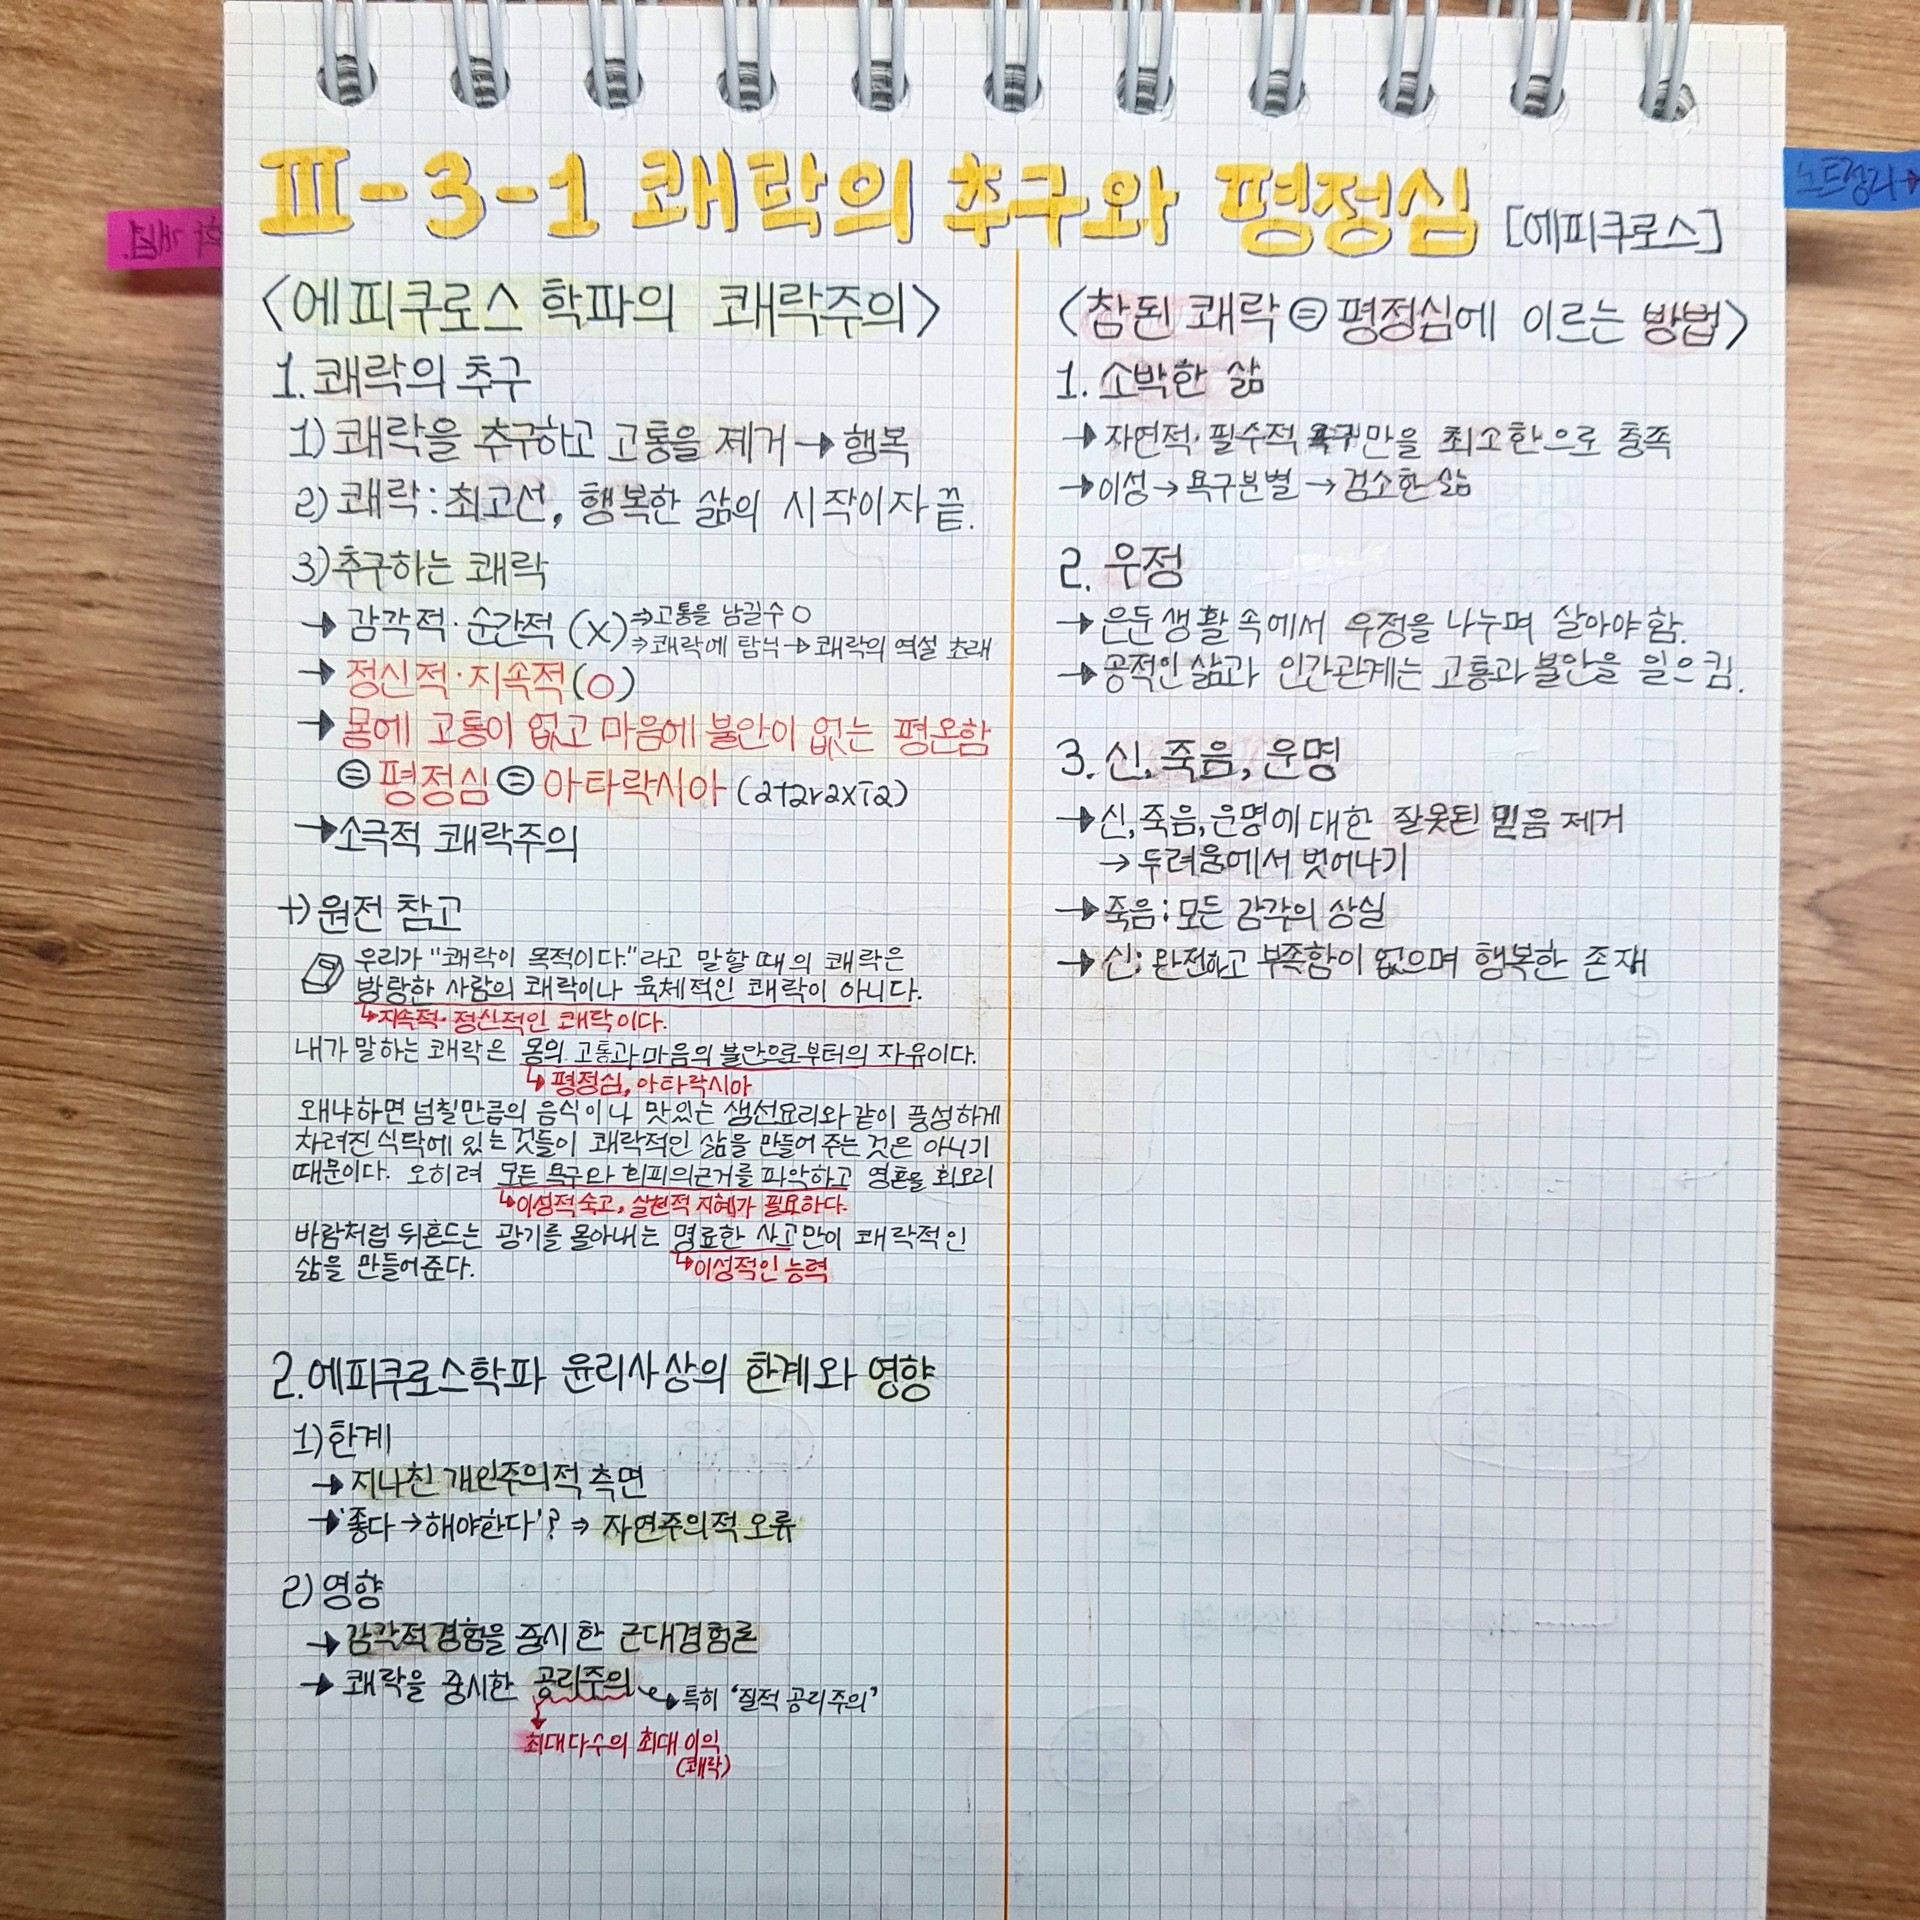 III-3-1 쾌락의 추구와 평정심 [에피쿠로스]
<에피쿠로스 학파의 쾌락주의>
1. 쾌락의 추구
1) 쾌락을 추구하고 고통을 제거 → 행복
2) 쾌락 : 최고선, 행복한 삶의 시작이자 끝.
3) 추구하는 쾌락
→ 감각적·순간적 (X) ⇒ 고통을 남길수 O
⇒ 쾌락에 탐닉 → 쾌락의 역설 초래
→ 정신적·지속적 (O)
→ 몸에 고통이 없고 마음에 불안이 없는 평온함
= 평정심 = 아타락시아 (ataraxia)
→ 소극적 쾌락주의
+) 원전 참고
우리가 "쾌락이 목적이다."라고 말할 때의 쾌락은
방탕한 사람의 쾌락이나 육체적인 쾌락이 아니다.
↳ 지속적·정신적인 쾌락이다.
내가 말하는 쾌락은 몸의 고통과 마음의 불안으로부터의 자유이다.
↳ 평정심, 아타락시아
왜냐하면 넘칠만큼의 음식이나 맛있는 생선요리와 같이 풍성하게
차려진 식탁에 있는 것들이 쾌락적인 삶을 만들어 주는 것은 아니기
때문이다. 오히려 모든 욕구와 회피의 근거를 파악하고 영혼을 회오리
↳ 이성적 숙고, 실천적 지혜가 필요하다.
바람처럼 뒤흔드는 광기를 몰아내는 명료한 사고만이 쾌락적인
↳ 이성적인 능력
삶을 만들어준다.
2. 에피쿠로스학파 윤리사상의 한계와 영향
1) 한계
→ 지나친 개인주의적 측면
→ '좋다 → 해야한다'? ⇒ 자연주의적 오류
2) 영향
→ 감각적 경험을 중시한 근대경험론
→ 쾌락을 중시한 공리주의 → 특히 '질적 공리주의'
최대다수의 최대 이익
(쾌락)
<참된 쾌락 = 평정심에 이르는 방법>
1. 소박한 삶
→ 자연적·필수적 욕구만을 최소한으로 충족
→ 이성 → 욕구분별 → 검소한 삶
2. 우정
→ 은둔 생활 속에서 우정을 나누며 살아야 함.
→ 공적인 삶과 인간관계는 고통과 불안을 일으킴.
3. 신, 죽음, 운명
→ 신, 죽음, 운명에 대한 잘못된 믿음 제거
→ 두려움에서 벗어나기
→ 죽음 : 모든 감각의 상실
→ 신 : 완전하고 부족함이 없으며 행복한 존재
노트정리